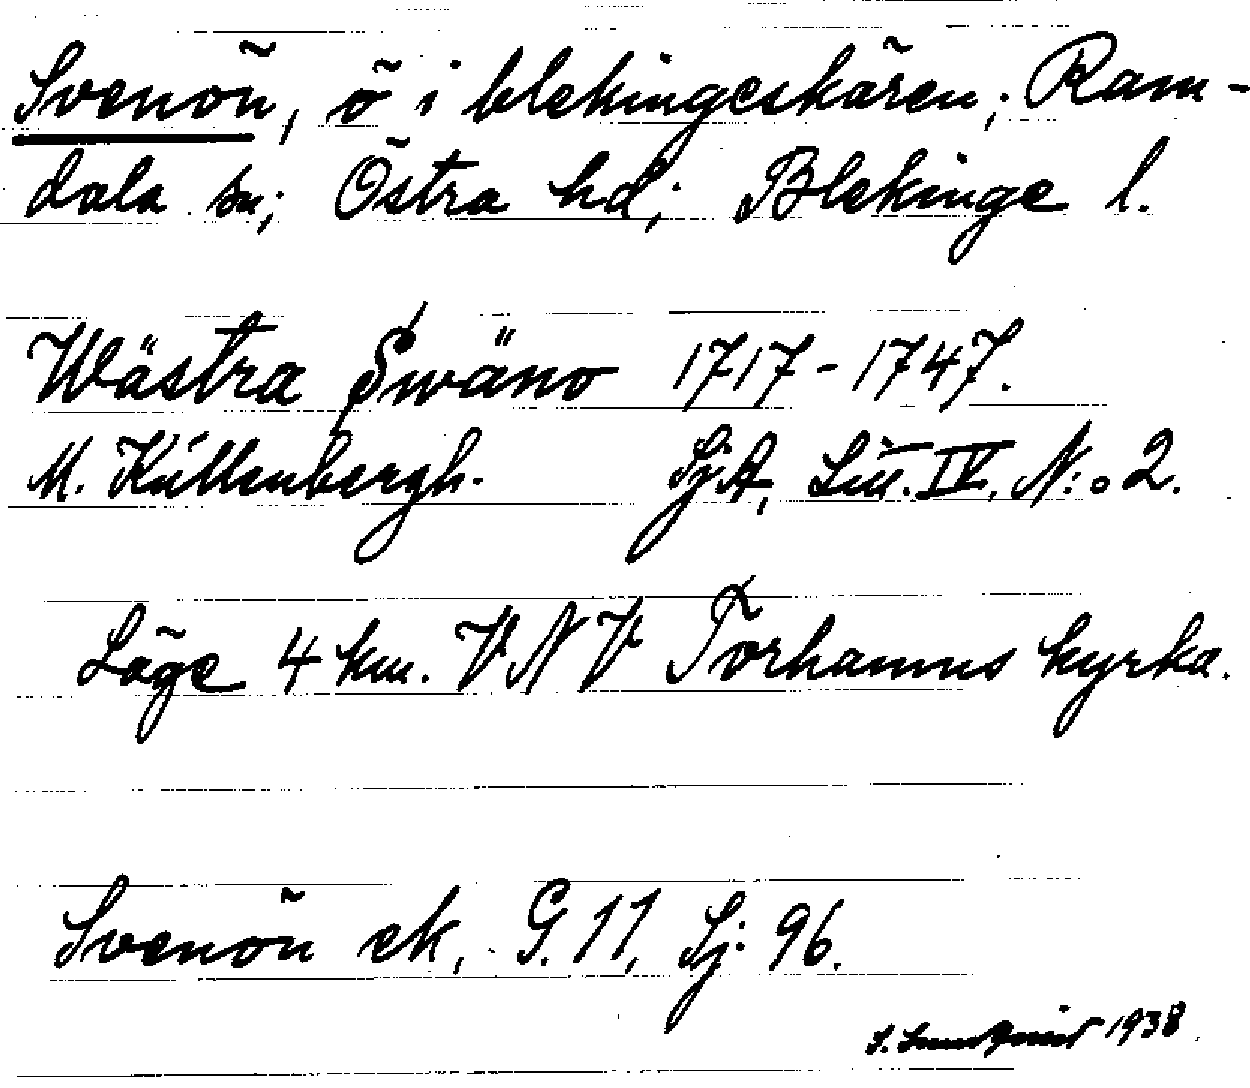 Svenön, ö i blekingeskären; Ram-
dala sn; Östra hd; Blekinge l.
Wästra Swäno 1717-1747.
M. Küllenbergh. Sj.A, Litt. IV, N:o 2.
Läge 4 km. VNV Torhamns kyrka.
Svenön ek, G. 11, Sj: 96.
S. Lundqvist 1938